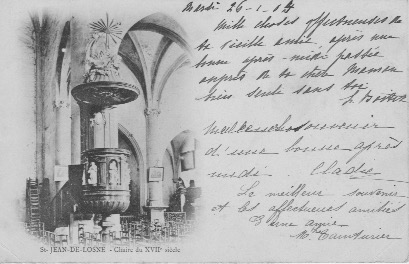 Mardi 26-1-04
Mille choses affectueuses de
ta vieille amie après une
bonne après-midi passée
auprès de ta chère Maman
bien seule sans toi
souvenir
d'une bonne après
midi
Le meilleur souvenir
et les affectueuses amitiés
d'une amie
St-JEAN-DE-LOSNE - Chaire du XVIIe siècle